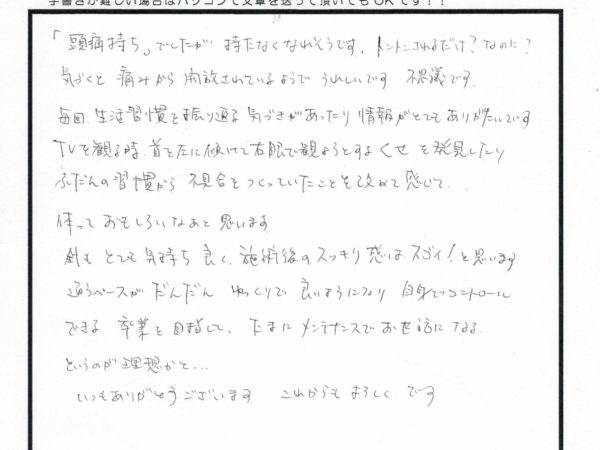 手書きが難しい場合はパソコンで文章を送って頂いてもOKです！！
「頭痛持ち」でしたが 持たなくなれそうです。トントンされるだけ？なのに？
気づくと 痛みから 開放されているようで うれしいです 不思議です。
毎回、生活習慣を振り返る 気づきがあったり 情報がとてもありがたいです
TVを観る時、首を左に傾けて右眼で観ようとするくせを発見したり
ふだんの習慣から 不具合をつくっていたことを改めて感じて、
体って おもしろいなあと 思います
針も とても 気持ち 良く、施術後のスッキリ感は スゴイ！と思います
通うペースが だんだん ゆっくりで 良いようになり 自身でコントロール
できる 卒業を目指して、たまに メンテナンスでお世話になる
というのが理想かと…
いつもありがとうございます これからも よろしく です